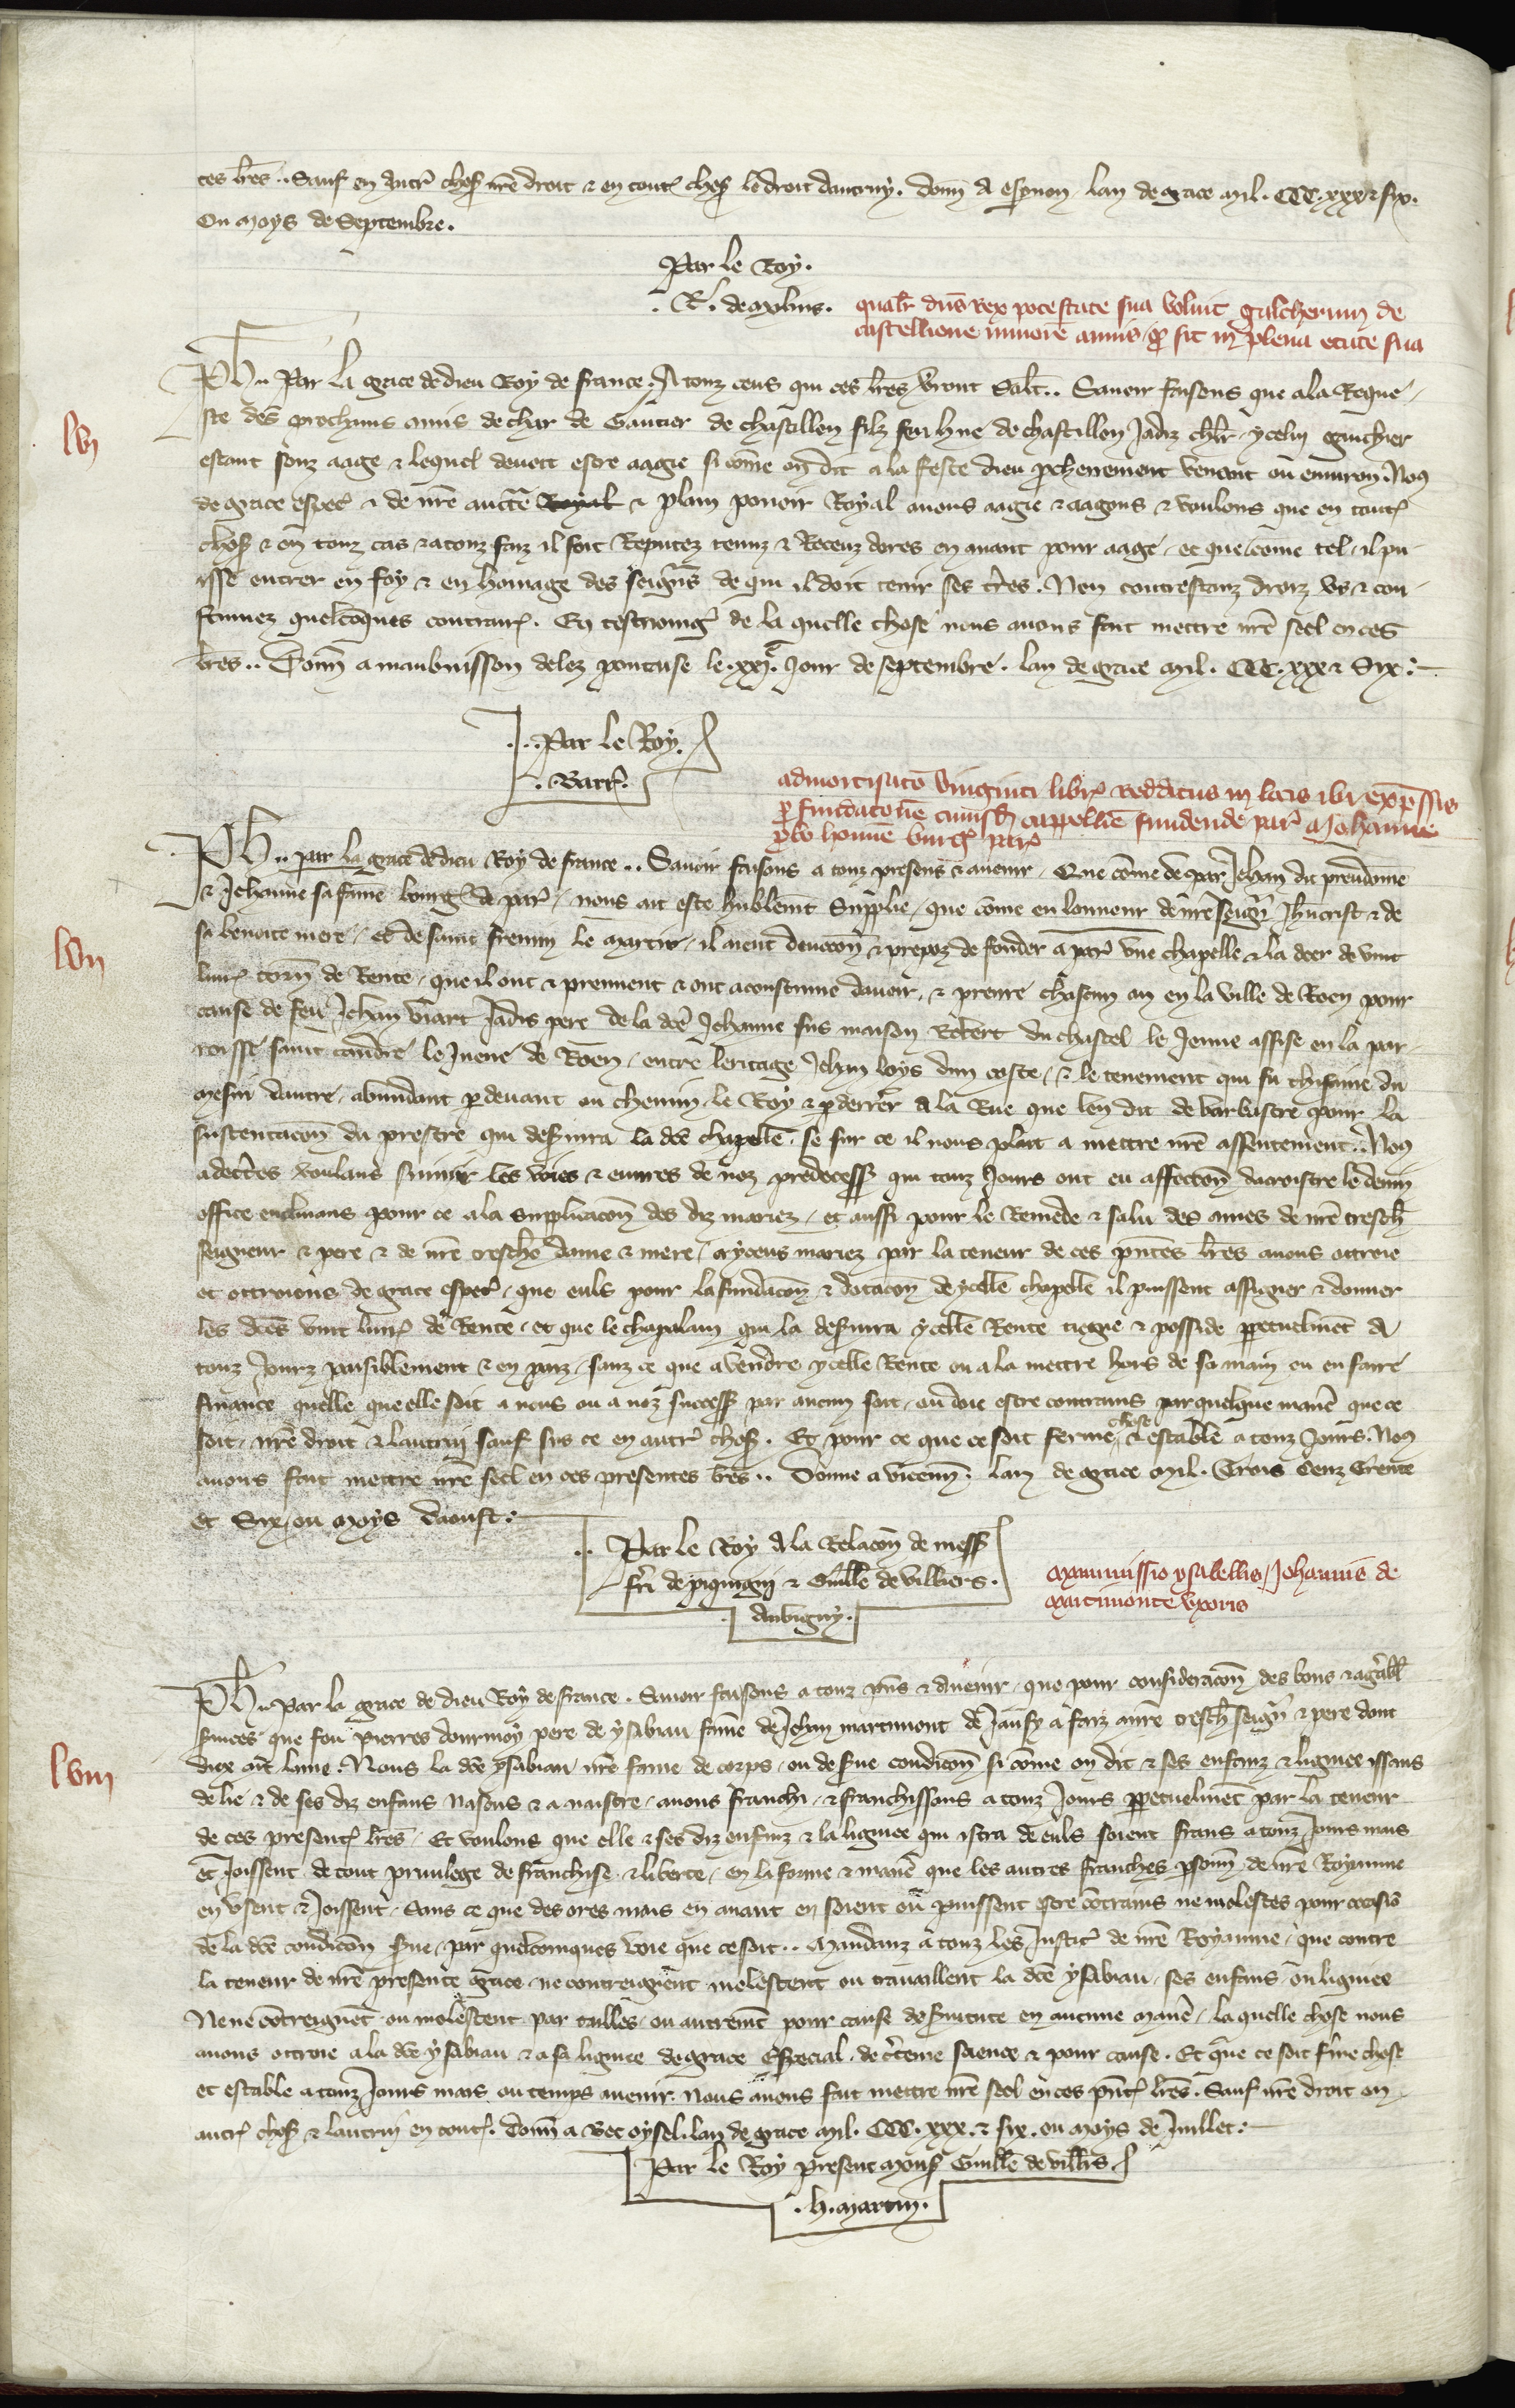 ces lres .. Sauf en autres choses nre droit & en toutes choses le droit dautruy . donn a espernon lan de grace mil . CCC . xxx & six .
Ou moys de Septembre .
Par le Roy .
. R . de molins .
qualr dns rex potestate sua voluit galcherum de
castellione minore annis qd sit in plena etate sua
lvi
Ph .. Par la grace de dieu Roy de france . A touz ceus qui ces lres verront Salt .. Savoir faisons que a la Reque
ste des prochains amis de char de Gautier de chastillon filz feu hue de chastillon Jadiz chlr ycelui gauchier
estant souz aage & lequel devoit estre aagie si come on dit a la feste dieu prochenement venant ou environ . Nous
de grace espec & de nre auctte Royal & plain povoir Royal avons aagie & aagons & voulons que en toutes
choses & en touz cas & a touz faiz il soit Reputez tenuz & Receuz dores en avant pour aage . et que come tel . il pu
isse entrer en foy & en homage des seigrs de qui il doit tenir ses tres . Non contrestanz droiz us & cou
stumez quelcoques contraires . En tesmoing de la quelle chose nous avons fait mettre nre seel en ces
lres .. Donn a maubuisson delez pontoise le . xxi . e Jour de septembre . lan de grace mil . CCC . xxx & Six :
. . Par le Roy .
. Barr .
admortisatio viginti libr redditus in locis ibi expressis
pro fundacone cuiusd cappellie fundende par a Johanne
probo homine burg par
lvii
Ph .. par la grace de dieu Roy de france .. Savoir faisons a touz presens & avenir . Que come de par Jehan dit preudome
& Jehanne sa fame bourg de par . nous ait este humblemt Supplie . que come en lonneur de nre seigr Jhucrist & de
sa benoite mere . et de saint fremin le martir . il aient devocon & propoz de fonder a par une chapelle & la doer de vint
livres torn de Rente . que il ont & prennent & ont acoustume davoir . & prenre chascun an en la ville de Roen pour
cause de feu Jehan viart Jadis pere de la dce Jehanne sus maison Robert du chastel le Jenne assise en la par
roisse saint candre le Juene de Roen . entre leritage Jehan loys dun coste . & le tenement qui fu thifaine du
mesni dautre . abundant p devant ou chemin le Roy & p derrier a la Rue que len dit de barbastre pour la
sustentacon du prestre qui deservira la dce chapelle . se sur ce il nous plait a mettre nre assentement . Nous
adecertes voulans suivir les voies & euvres de noz predecess qui touz Jours ont eu affeccon dacroistre le devin
office enclinans pour ce a la supplicacon des diz mariez . et aussi pour le Remede & salu des ames de nre tresch
seigneur & pere & de nre tresche dame & mere . a yceus mariez par la teneur de ces pntes lres avons ottroie
et ottroions de grace espec . que euls pour la fundacon & dotacon dycelle chapelle il puissent assigner & donner
les dces vint livres de Rente . et que le chapelain qui la deservira ycelle Rente tiegne & posside perpetuelmet a
touz Jourz paisiblement & en paiz . sanz ce que a vendre ycelle Rente ou a la mettre hors de sa main ou en faire
finance quelle que elle soit a nous ou a noz success par aucun soit . ou doie estre contrains par quelque manie que ce
soit . nre droit & lautrui sauf sus ce en autres choses . Et pour ce que ce soit ferme chose & estable a touz Jours . Nous
avons fait mettre nre seel en ces presentes lres .. Donne a vicenn . lan de grace mil . Trois Cenz Trente
et Six ou moys daoust :
. . Par le Roy a la Relacon de mess
fri de piquigni & Guille de villiers .
. daubigny .
manumissio ysabellis Johannis de
martimonte uxoris
lviii
Ph .. Par la grace de dieu Roy de france . Savoir faisons a touz pns & avenir . que pour consideracon des bons & agrabl
services que feu Pierres dourmoy pere de ysabiau fame de Jehan martimont de Jansy a faiz a nre tresch seigr & pere dont
diex ait lame . Nous la dce ysabiau nre fame de corps . ou de serve condicon si come on dit & ses enfanz & lignee issans
de lie & de ses diz enfans nasous & a naistre . avons franchi . & franchissons a touz Jours perpetuelment par la teneur
de ces presentes lres . Et voulons que elle & ses diz enfanz & la lignee qui istra de euls soient frans a touz Jours mais
et Joissent de tout privilege de franchise & liberte . en la forme & manie que les autres franches psonn de nre Royaume
en usent & Joissent . Sans ce que des ores mais en avant en soient ou puissent estre cotrains ne molestes pour occasio
de la dce condicon serve . par quelcomques voie que ce soit .. Mandanz a touz les Justic de nre Royaume . que contre
la teneur de nre presente grace . ne contreignent molestent ou travaillent la dce ysabiau . ses enfans ou lignee
Ne ne cotreignet ou molestent par tailles . ou autremt pour cause de servitute en aucune manie . la quelle chose nous
avons ottroie a la dce ysabiau & a sa lignee de grace Especial . de certeine science & pour cause . Et que ce soit ferme chose
et estable a touz Jours mais ou temps avenir . Nous avons fait mettre nre seel en ces pntes lres . Sauf nre droit en
autres choses & lautrui en toutes . Donn a Bec oysel . lan de grace mil . CCC . xxx . & six . ou moys de Juillet :
Par le Roy present mons Guille de villrs
. h . martin .